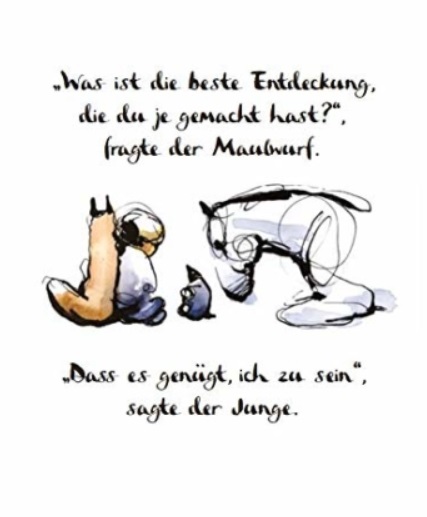 „Was ist die beste Entdeckung,
die du je gemacht hast?“,
fragte der Maulwurf.
„Dass es genügt, ich zu sein“,
sagte der Junge.